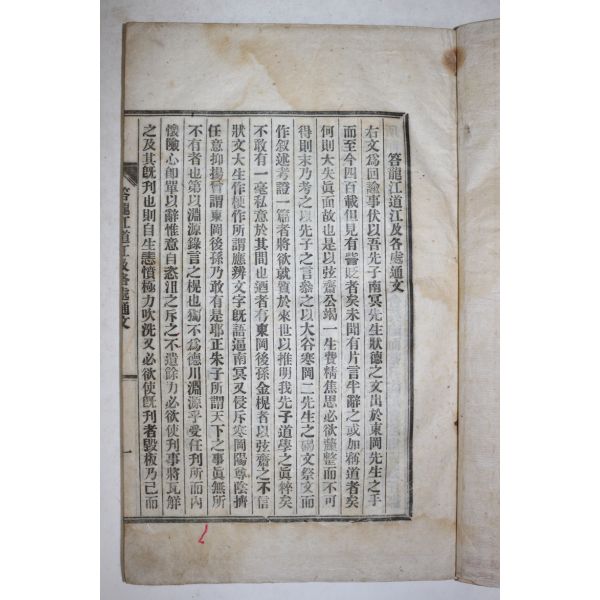 答龍江道江及各處通文
右文爲回諭事伏以吾先子南冥先生狀德之文出於東岡先生之手
而至今四百載但見有訾貶者矣未聞有片言半辭之或加稱道者矣
何則大失眞面故也是以弦齋公竭一生費精焦思必欲釐整而不可
得則末乃考之以先子之言叅之以大谷寒岡二先生之碣文祭文而
作叙述考證一篇者將欲就質於來世以推明我先子道學之眞粹矣
不敢有一毫私意於其間也迺者有東岡後孫金梘者以弦齋之不信
狀文大生作梗作所謂應辨文字旣語逼南冥又侵斥寒岡陽尊陰擠
任意抑揚嘗謂東岡後孫乃敢有是耶正朱子所謂天下之事眞無所
不有者也第以淵源錄言之梘也獨不爲德川淵源乎受任刊所而內
懷險心卽單以辭惟意自恣沮之斥之不遺餘力必欲使刊事將瓦解
之及其旣刊也則自生恚憤極力吹洗又必欲使旣刊者毁板乃已而
答龍江道江及各處通文
一